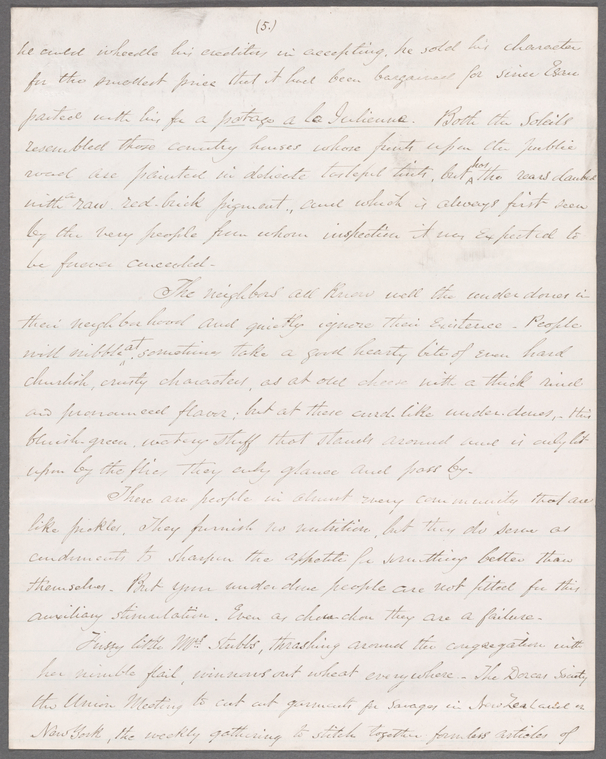 (5.)
he could wheedle his creditors in accepting, he sold his character
for the smallest price that it had been bargained for since Esau
parted with his for a potage a la Julienne. Both the Soleils
resembled those country houses whose fronts upon the public
road are painted in delicate tasteful tints, but the rears daubed
with raw red brick pigment, and which is always first seen
by the very people from whose inspection it was expected to
be forever concealed.
The neighbors all know well the underdones in
their neighborhood and quietly ignore their existence. People
will nibble at, sometimes take a good hearty bite of even hard
churlish, crusty characters, as at old cheese with a thick rind
and pronounced flavor; but at these curd-like underdones, this
bluish-green, watery stuff that stands around and is only lit
upon by the flies they only glance and pass by.
There are people in almost every community that are
like pickles. They furnish no nutrition, but they do serve as
condiments to sharpen the appetite for something better than
themselves. But your underdone people are not fitted for this
auxiliary stimulation. Even as chow chow they are a failure.
Fussy little Mrs. Stubbs, thrashing around the congregation with
her nimble flail, winnows out wheat everywhere. The Dorcas Society
the Union Meeting to cut out garments for savages in New Zealand or
New York, the weekly gathering to stitch together formless articles of